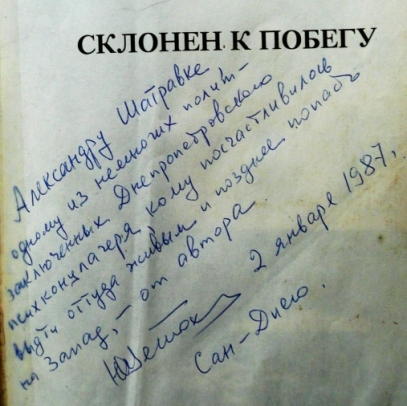 СКЛОНЕН К ПОБЕГУ
Александру Шатравке
одному из немногих полит-
заключенных Днепропетровского
психконцлагеря кому посчастливилось
выдти оттуда живым и позднее попасть
на Запад, – от автора
ЮВетох 2 января 1987,
Сан-Диего.